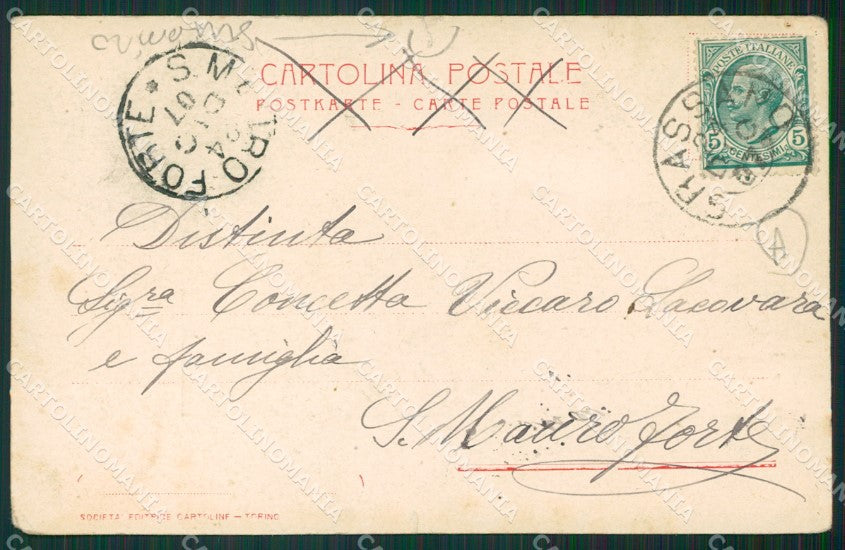 CARTOLINA POSTALE
POSTKARTE - CARTE POSTALE
S. MAURO FORTE
07
POSTE ITALIANE
5 CENTESIMI 5
GRASSANO
4
Distinta
Sig.ra Concetta Viccaro Lacovara
e famiglia
S. Mauro Forte
SOCIETA' EDITRICE CARTOLINE — TORINO
CARTOLINOMANIA